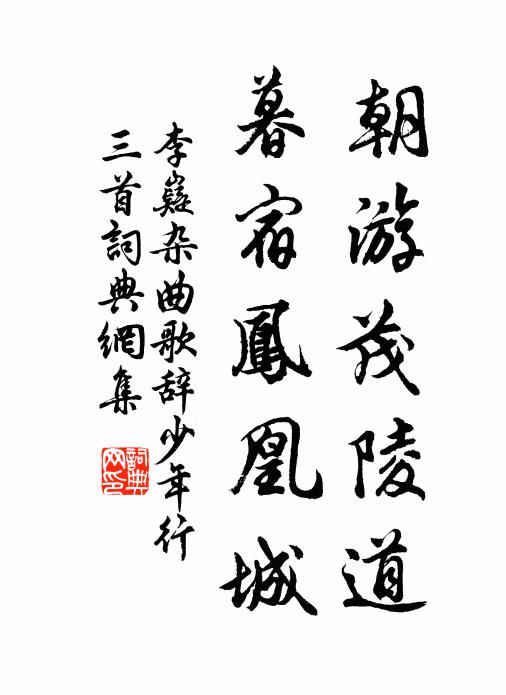 朝游茂陵道
暮宿鳳凰城
李嶷杂曲歌辞少年行
三首詞典網集
詞典网印